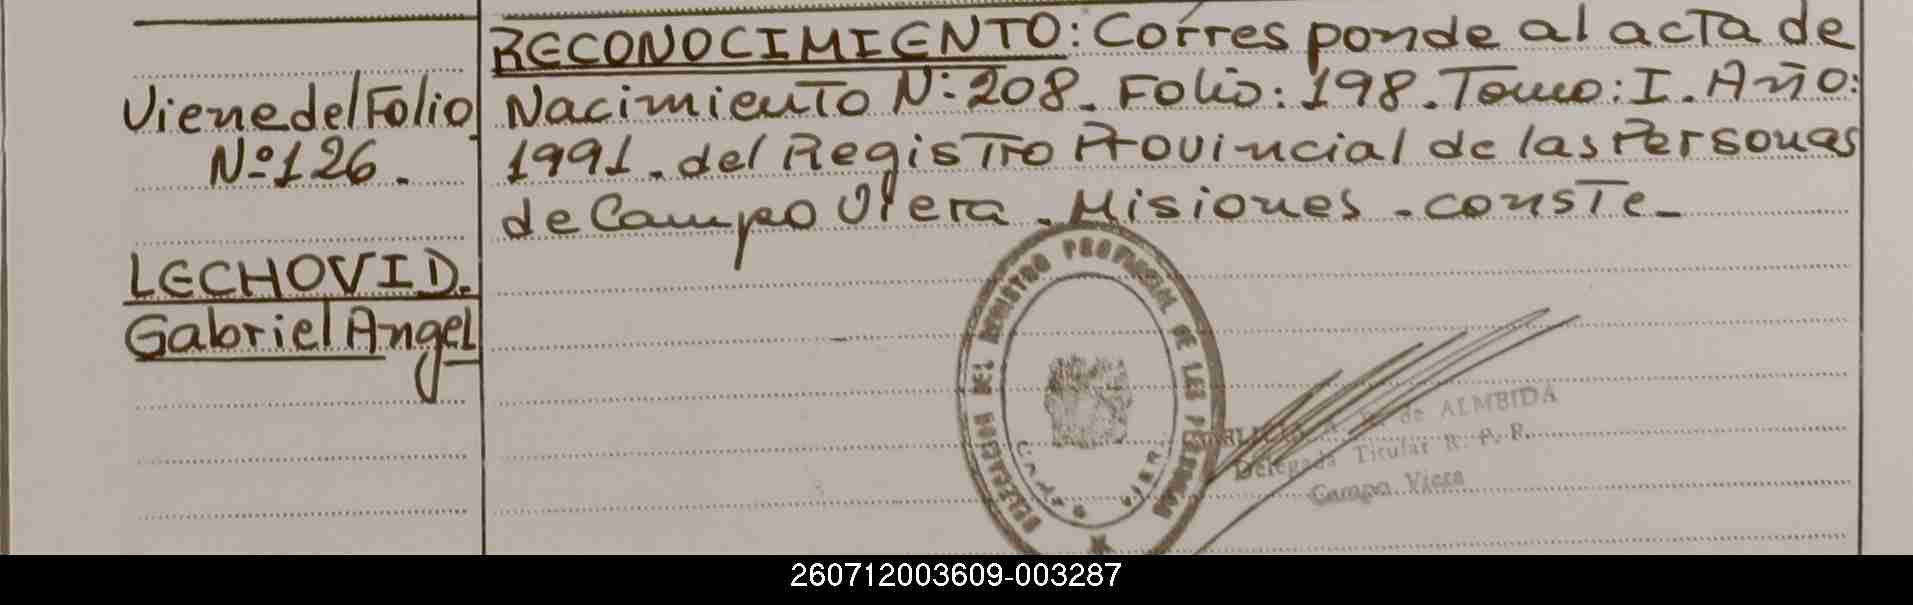 RECONOCIMIENTO: Corresponde al acta de
Nacimiento N: 208. Folio: 198. Tomo: I. Año:
1991. del Registro Provincial de las Personas
de Campo Viera. Misiones. conste_
Viene del Folio
Nº 126.
LECHOVID.
Gabriel Angel
DELEGACION DEL REGISTRO PROVINCIAL DE LAS PERSONAS
de ALMEIDA
Delegada Titular R. P. P.
Campo Viera
260712003609-003287